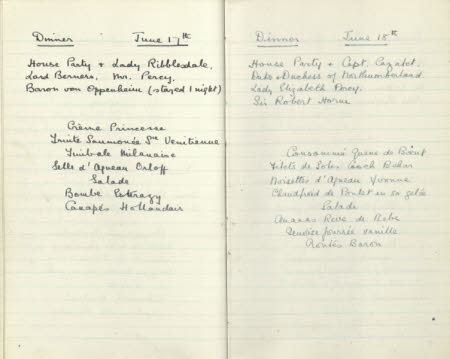 Dinner June 17th
House Party + Lady Ribblesdale.
Lord Berners, Mr. Percy.
Baron von Oppenheim (stayed 1 night)
Crème Princesse
Truite Saumonée Sce Venitienne
Timbale Milanaise
Selle d'Agneau Orloff
Salade
Bombe
Canapés Hollandais
Dinner June 18th
House Party + Capt. Cazalet.
Duke + Duchess of Northumberland.
Lady Elizabeth Percy.
Sir Robert Horne
Consommé Queue de Bœuf
Filets de Soles
Noisettes d'Agneau Yvonne
Chaudfroid de Poulet en sa gelée
Salade
Ananas
fourrée vanille
Baron